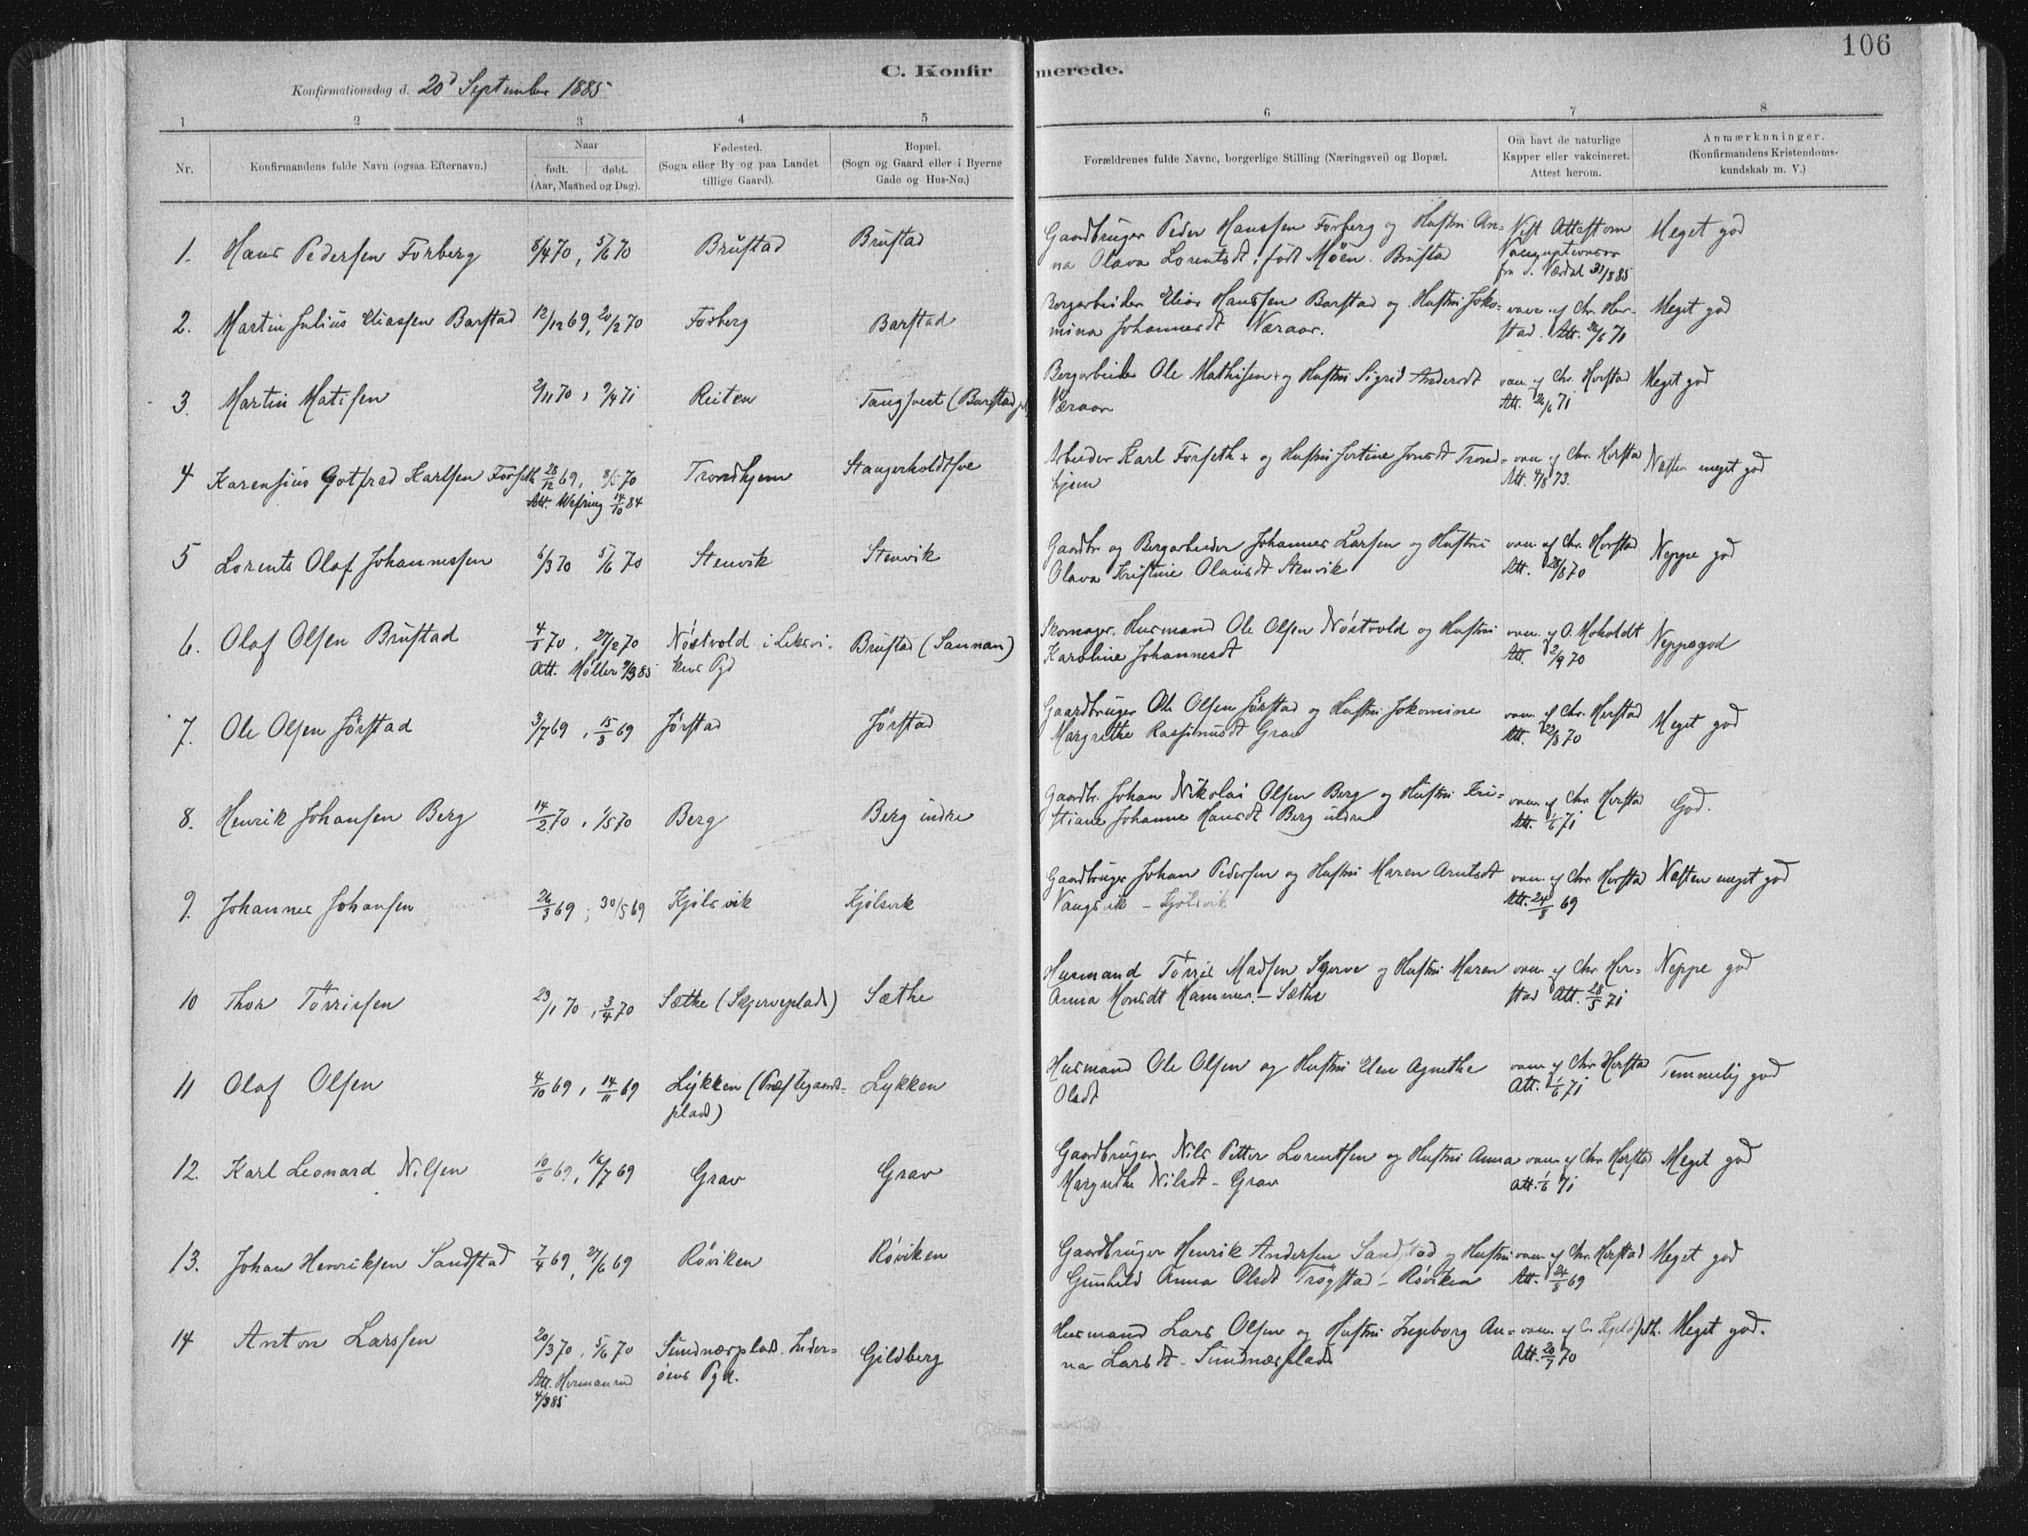 106
C. Konfirmerede.
Konfirmationsdag d. 20d September 1885
1 2 3 4 5 6 7 8
Nr. Konfirmandens fulde Navn (ogsaa Efternavn.) Naar født. døbt. (Aar, Maaned og Dag). Fødested. (Sogn eller By og paa Landet tillige Gaard). Bopæl. (Sogn og Gaard eller i Byerne Gade og Hus-No.) Forældrenes fulde Navne, borgerlige Stilling (Næringsvei) og Bopæl. Om havt de naturlige Kapper eller vakcineret. Attest herom. Anmærkninger. (Konfirmandens Kristendomskundskab m. V.)
1. Hans Pedersen Forberg 8/4 70, 5/6 70 Brustad Brustad Gaardbruger Peder Hanssen Forberg og Hustru An= Vist Attest om Meget god
na Olava Lorentsdt, født Møen. Brustad Vaccinationen
fra S. Værdal 31/8 85
2. Martin Julius Eliassen Barstad 12/12 69, 20/2 70 Forberg Barstad Bergarbeider Elias Hanssen Barstad og Hustru Joko= vacc. af Chr. Her- Meget god
mina Johannesdt Væraar. stad. Att. 26/6 71
3. Martin Matisen 2/11 70, 9/4 71 Reiten Tangsvedt (Barstadpl) Bergarbeider Ole Mathisen + og Hustru Sigrid Andersdt vacc. af Chr. Herstad Meget god
Væraar Att. 26/6 71
4 Karensius Gotfred Karlsen Forseth 28/12 69, 8/5 70 Trondhjem Stangerholdtsve Arbeider Karl Forseth + og Hustru Jertine Jonsdt Trond= vacc. af Chr. Herstad Næsten meget god
Att. Wefring 14/10 84 hjem Att. 4/8 73.
5 Lorents Olaf Johannessen 6/3 70 5/6 70 Stenvik Stenvik Gaardbr og Bergarbeider Johannes Larsen og Hustru vacc. af Chr. Herstad Neppe god
Olava Kristine Olausdt Stenvik Att. 28/8 70
6. Olaf Olsen Brustad 4/1 70, 27/2 70 Nøstvold i Leksvi- Brustad (Sannan) Skomager, Husmand Ole Olsen Nøstvold og Hustru vacc. af O. Moholdt Neppe god
Att. Møller 9/3 85 kens Pgd Karoline Johannesdt Att. 2/9 70
7. Ole Olsen Jørstad 3/7 69, 15/8 69 Jørstad Jørstad Gaardbruger Ole Olsen Jørstad og Hustru Jokomine vacc. af Chr. Herstad Meget god
Margrethe Rassmusdt Grav Att. 29/8 70
8. Henrik Johansen Berg 14/2 70, 1/5 70 Berg Berg indre Gaardbr. Johan Nikolai Olsen Berg og Hustru Kri= vacc. af Chr Herstad God.
stiane Johanne Hansdt Berg indre Att. 1/6 71
9. Johannes Johansen 26/3 69, 30/5 69 Kjølsvik Kjølsvik Gaardbruger Johan Pedersen og Hustru Maren Arntsdt vacc. af Chr Herstad Næsten meget god
Vangsvik - Kjølsvik Att. 24/8 69
10 Thor Tørrissen 23/1 70, 3/4 70 Sæthe (Skjerveplads) Sæthe Husmand Tørris Madsen Skjerve og Hustru Maren vacc. af Chr Her= Neppe god
Anna Monsdt Hammer. - Sæthe stad Att. 28/5 71
11 Olaf Olsen 4/10 69, 14/11 69 Lykken (Præstegaards- Lykken Husmand Ole Olsen og Hustru Elen Agnethe vacc. af Chr Herstad Temmelig god
plads) Olsdt Att. 1/6 71
12. Karl Leonard Nilsen 10/6 69, 16/7 69 Grav Grav Gaardbruger Nils Petter Lorentsen og Hustru Anna vacc. af Chr Herstad Meget god
Margrethe Nilsdt - Grav Att. 1/6 71
13. Johan Henriksen Sandstad 7/4 69, 27/6 69 Røviken Røviken Gaardbruger Henrik Andersen Sandstad og Hustru vacc. af Chr. Herstad Meget god
Gunhild Anna Olsdt Trøgstad - Røviken Att. 24/8 69
14 Anton Larssen 20/3 70, 5/6 70 Sundnæsplads. Inder- Gildberg Husmand Lars Olsen og Hustru Ingeborg An= vacc. af C. Kjeldseth. Meget god.
Att. Hermanrud øens Pgd. na Larsdt - Sundnæsplads Att. 20/7 70
4/9 85